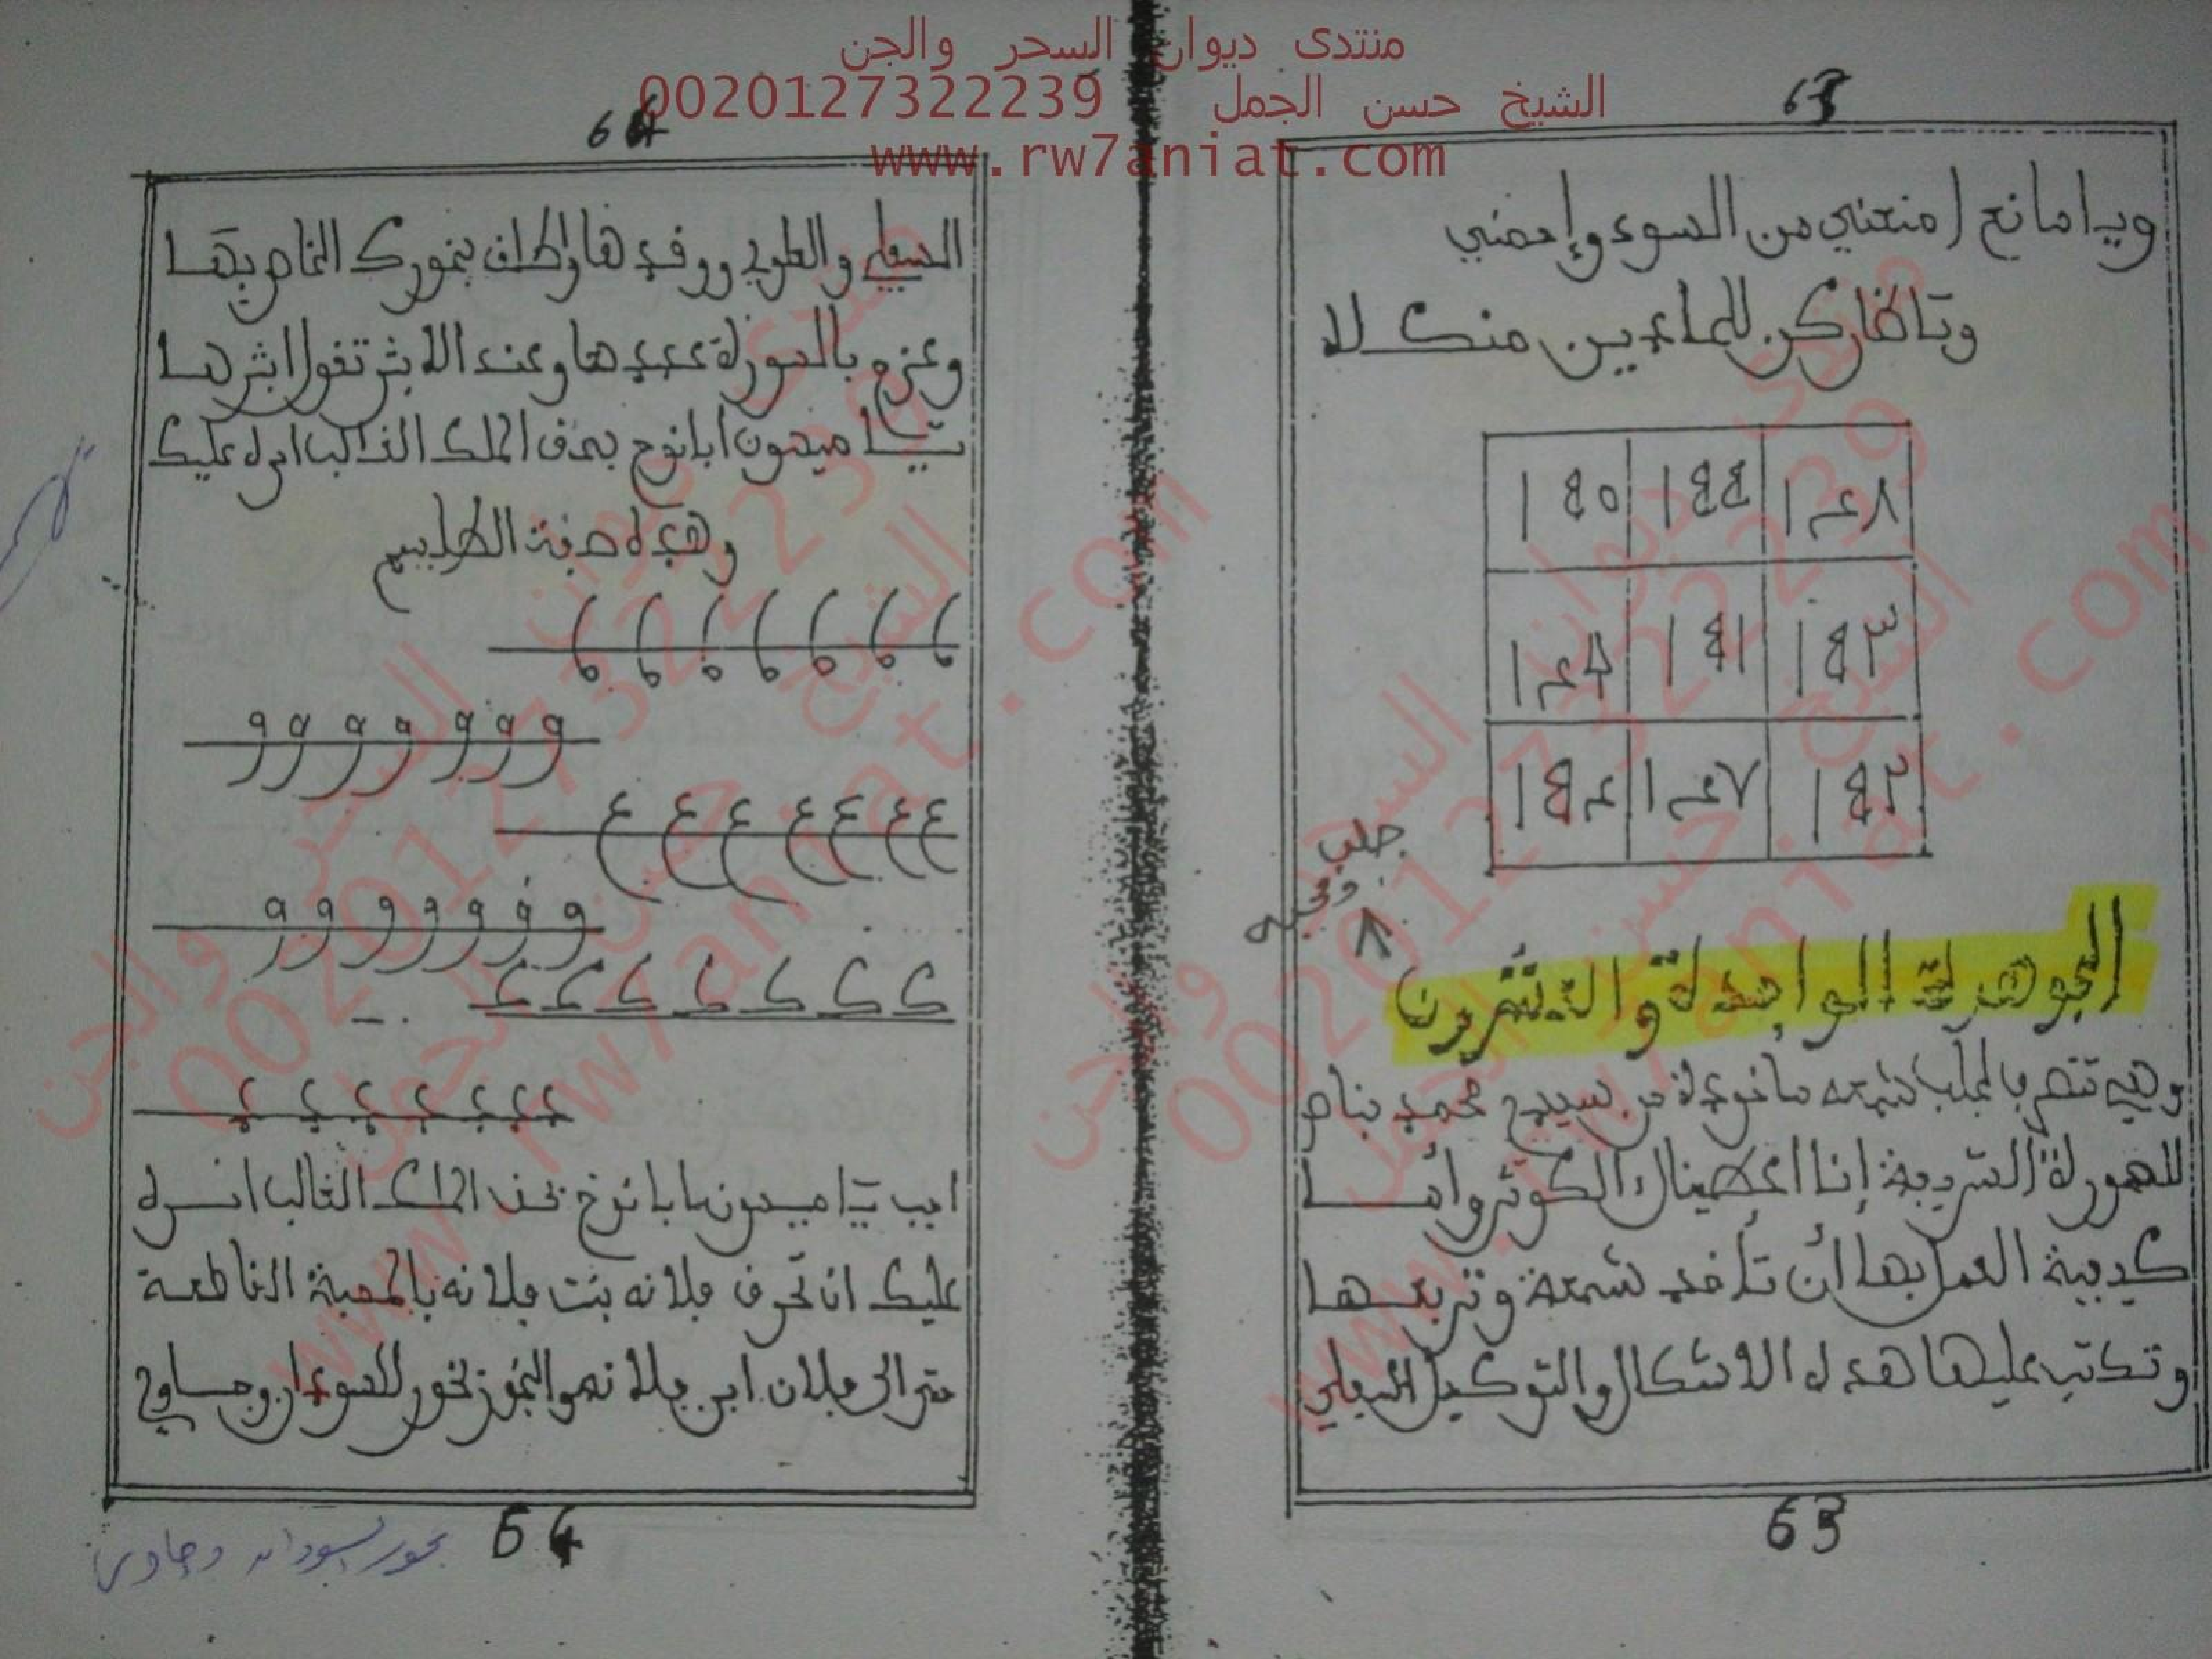 منتدى ديوان السحر والجن
الشيخ حسن الجمل 0020127322239
www.rw7aniat.com
63
ويا مانع امنعني من السوء وإحضني
ويا ضار كن للماءيين منك لا
جلب
ومحبه
الجوهرة الواحدة والعشرون
وهي تنصرف لجلب شمعه مأخوذة من سيدي محمد بناصر
للسورة الشريفة إنا اعطيناك الكوثر وأما
كيفية العمل بها أن تأخذ شمعة وتربعها
وتكتب عليها هده الاشكال والتوكيل السفلي
63
64
السفلي والعلوي ووقدها واطلق بخورك الخاص بها
وعزم بالسورة عددها وعند الاثر تقول اثرها
يا ميمون أبانوخ بحق الملك الغالب امره عليك
وهده صفة الطلاسم
و و و و و و و
ع ع ع ع ع ع ع
و و و و و و و
ك ك ك ك ك ك ك
اجب يا ميمون يا بانوخ بحق الملك الغالب امره
عليك ان تحرق فلانه بنت فلانه بالمحبة القاطعة
حتى الى فلان ابن فلانه والبخور بخور السودان وجاوي
64
بخور السودان وجاوي